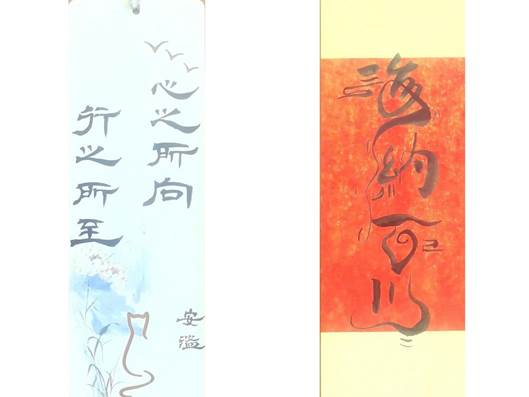 心之所向
行之所至
安滥
海纳百川